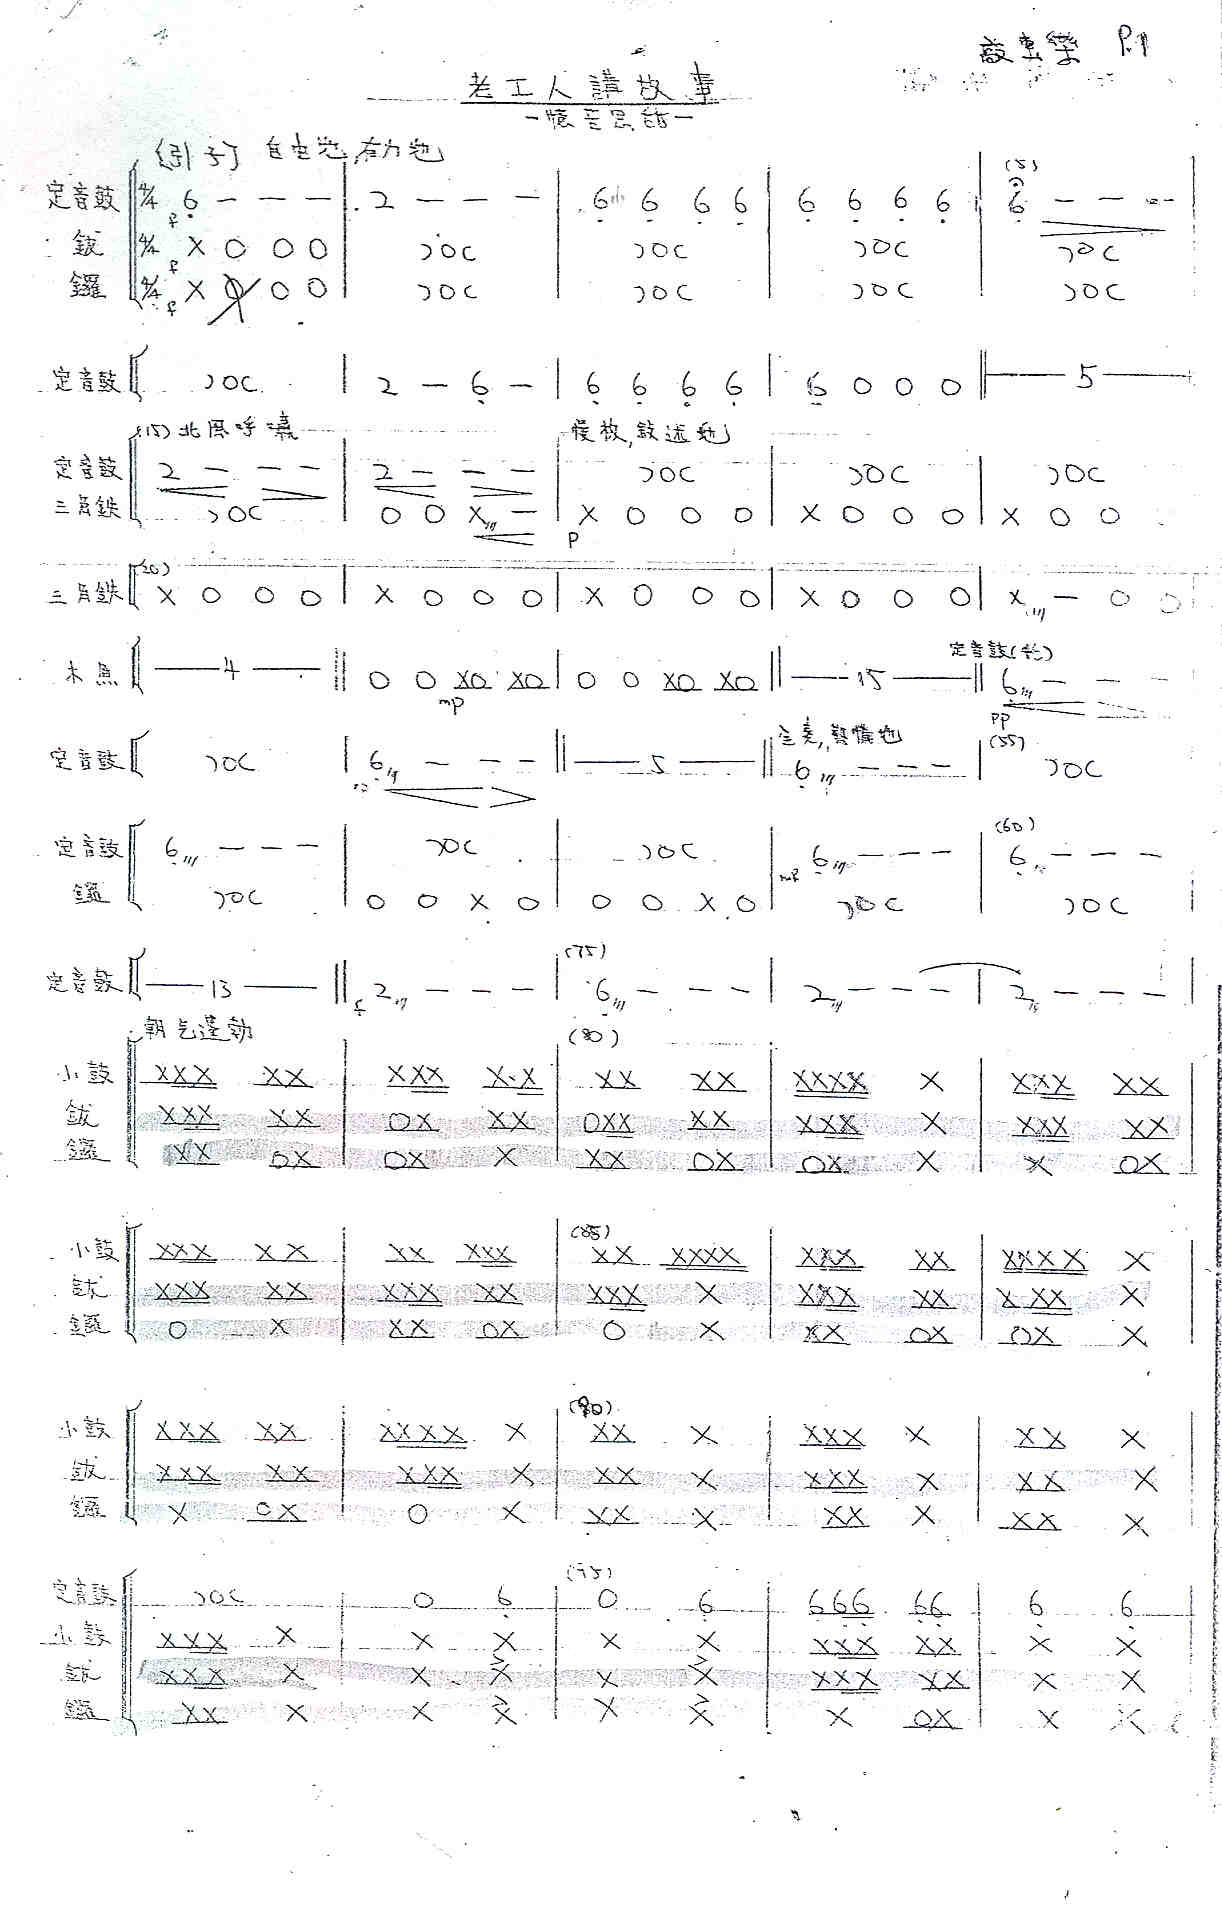 敲击樂 P.1
老工人講故事
－憶苦思甜－
〔引子〕 自由地,有力地
(5)
定音鼓 4/4 6 － － － | 2 － － － | 6 6 6 6 | 6 6 6 6 | 6 － － －
f
鈸 4/4 X O O O
f
鑼 4/4 X O O O
f
定音鼓 | 2 － 6 － | 6 6 6 6 | 6 O O O || 5
(15) 北風呼嘯 慢板,敘述地
定音鼓 2 － － － | 2 － － －
三角鉄 | O O X － | X O O O | X O O O | X O O
p
(20)
三角鉄 X O O O | X O O O | X O O O | X O O O | X － O O
定音鼓
木魚 4 || O O XO XO | O O XO XO || 15 || 6 － － －
mp pp
全奏, (55)
定音鼓 | 6 － － － || 5 || 6 － － － |
(60)
定音鼓 6 － － － | | | 6 － － － | 6 － － －
mp
鑼 | O O X O | O O X O | |
(75)
定音鼓 13 || 2 － － － | 6 － － － | 2 － － － | 2 － － －
f
朝气蓬勃 (80)
小鼓 XXX XX | XXX X·X | XX XX | XXXX X | XXX XX
鈸 XXX XX | OX XX | OXX XX | XXX X | XXX XX
鑼 XX OX | OX X | XX OX | OX X | X OX
(85)
小鼓 XXX XX | XX XXX | XX XXXX | XXX XX | XXXX X
鈸 XXX XX | XXX XX | XXX X | XXX XX | XXX X
鑼 O X | XX OX | O X | XX OX | OX X
(90)
小鼓 XXX XX | XXXX X | XX X | XXX X | XX X
鈸 XXX XX | XXX X | XX X | XXX X | XX X
鑼 X OX | O X | XX X | XX X | XX X
(95)
定音鼓 | O 6 | O 6 | 666 66 | 6 6
小鼓 XXX X | X X | X X | XXX XX | X X
鈸 XXX X | X X | X X | XXX XX | X X
鑼 XX X | X X | X X | X OX | X X